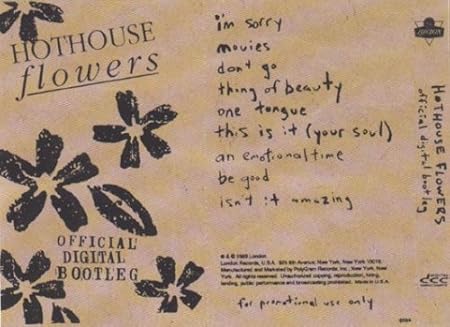 HOTHOUSE
flowers
OFFICIAL
DIGITAL
BOOTLEG
i'm sorry
movies
don't go
thing of beauty
one tongue
this is it (your soul)
an emotional time
be good
isn't it amazing
London Records, U.S.A.
Manufactured and Marketed by PolyGram Records, Inc., New York, New
York. All rights reserved. Unauthorized copying, reproduction, hiring,
lending, public performance and broadcasting prohibited. Made in U.S.A.
for promotional use only
LONDON
HOTHOUSE FLOWERS
official digital bootleg